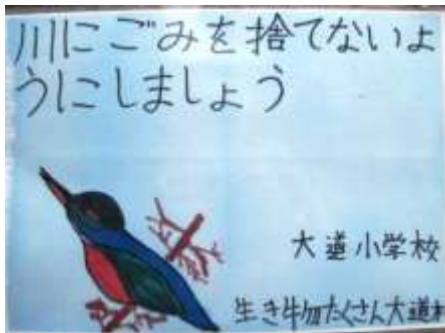 川にごみを捨てないよ
うにしましょう
大道小学校
生き物たくさん大道